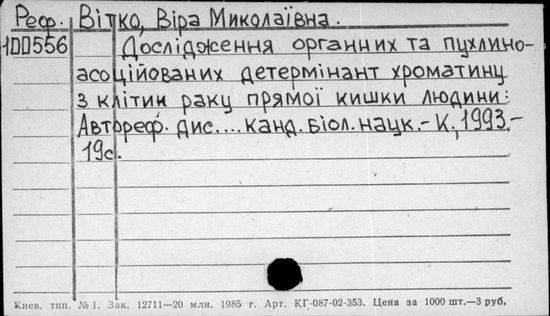 Реф. Вітко, Віра Миколаївна.
1DD556 Дослідження органних та пухлино-
асоційованих детермінант хроматину
з клітин раку прямої кишки людини:
Автореф. дис.... канд. біол. наук.- К., 1993.-
19с.
Киев. тип. № 1. Зак. 12711—20 млн. 1985 г. Арт. КГ-087-02-353. Цена за 1000 шт.—3 руб.